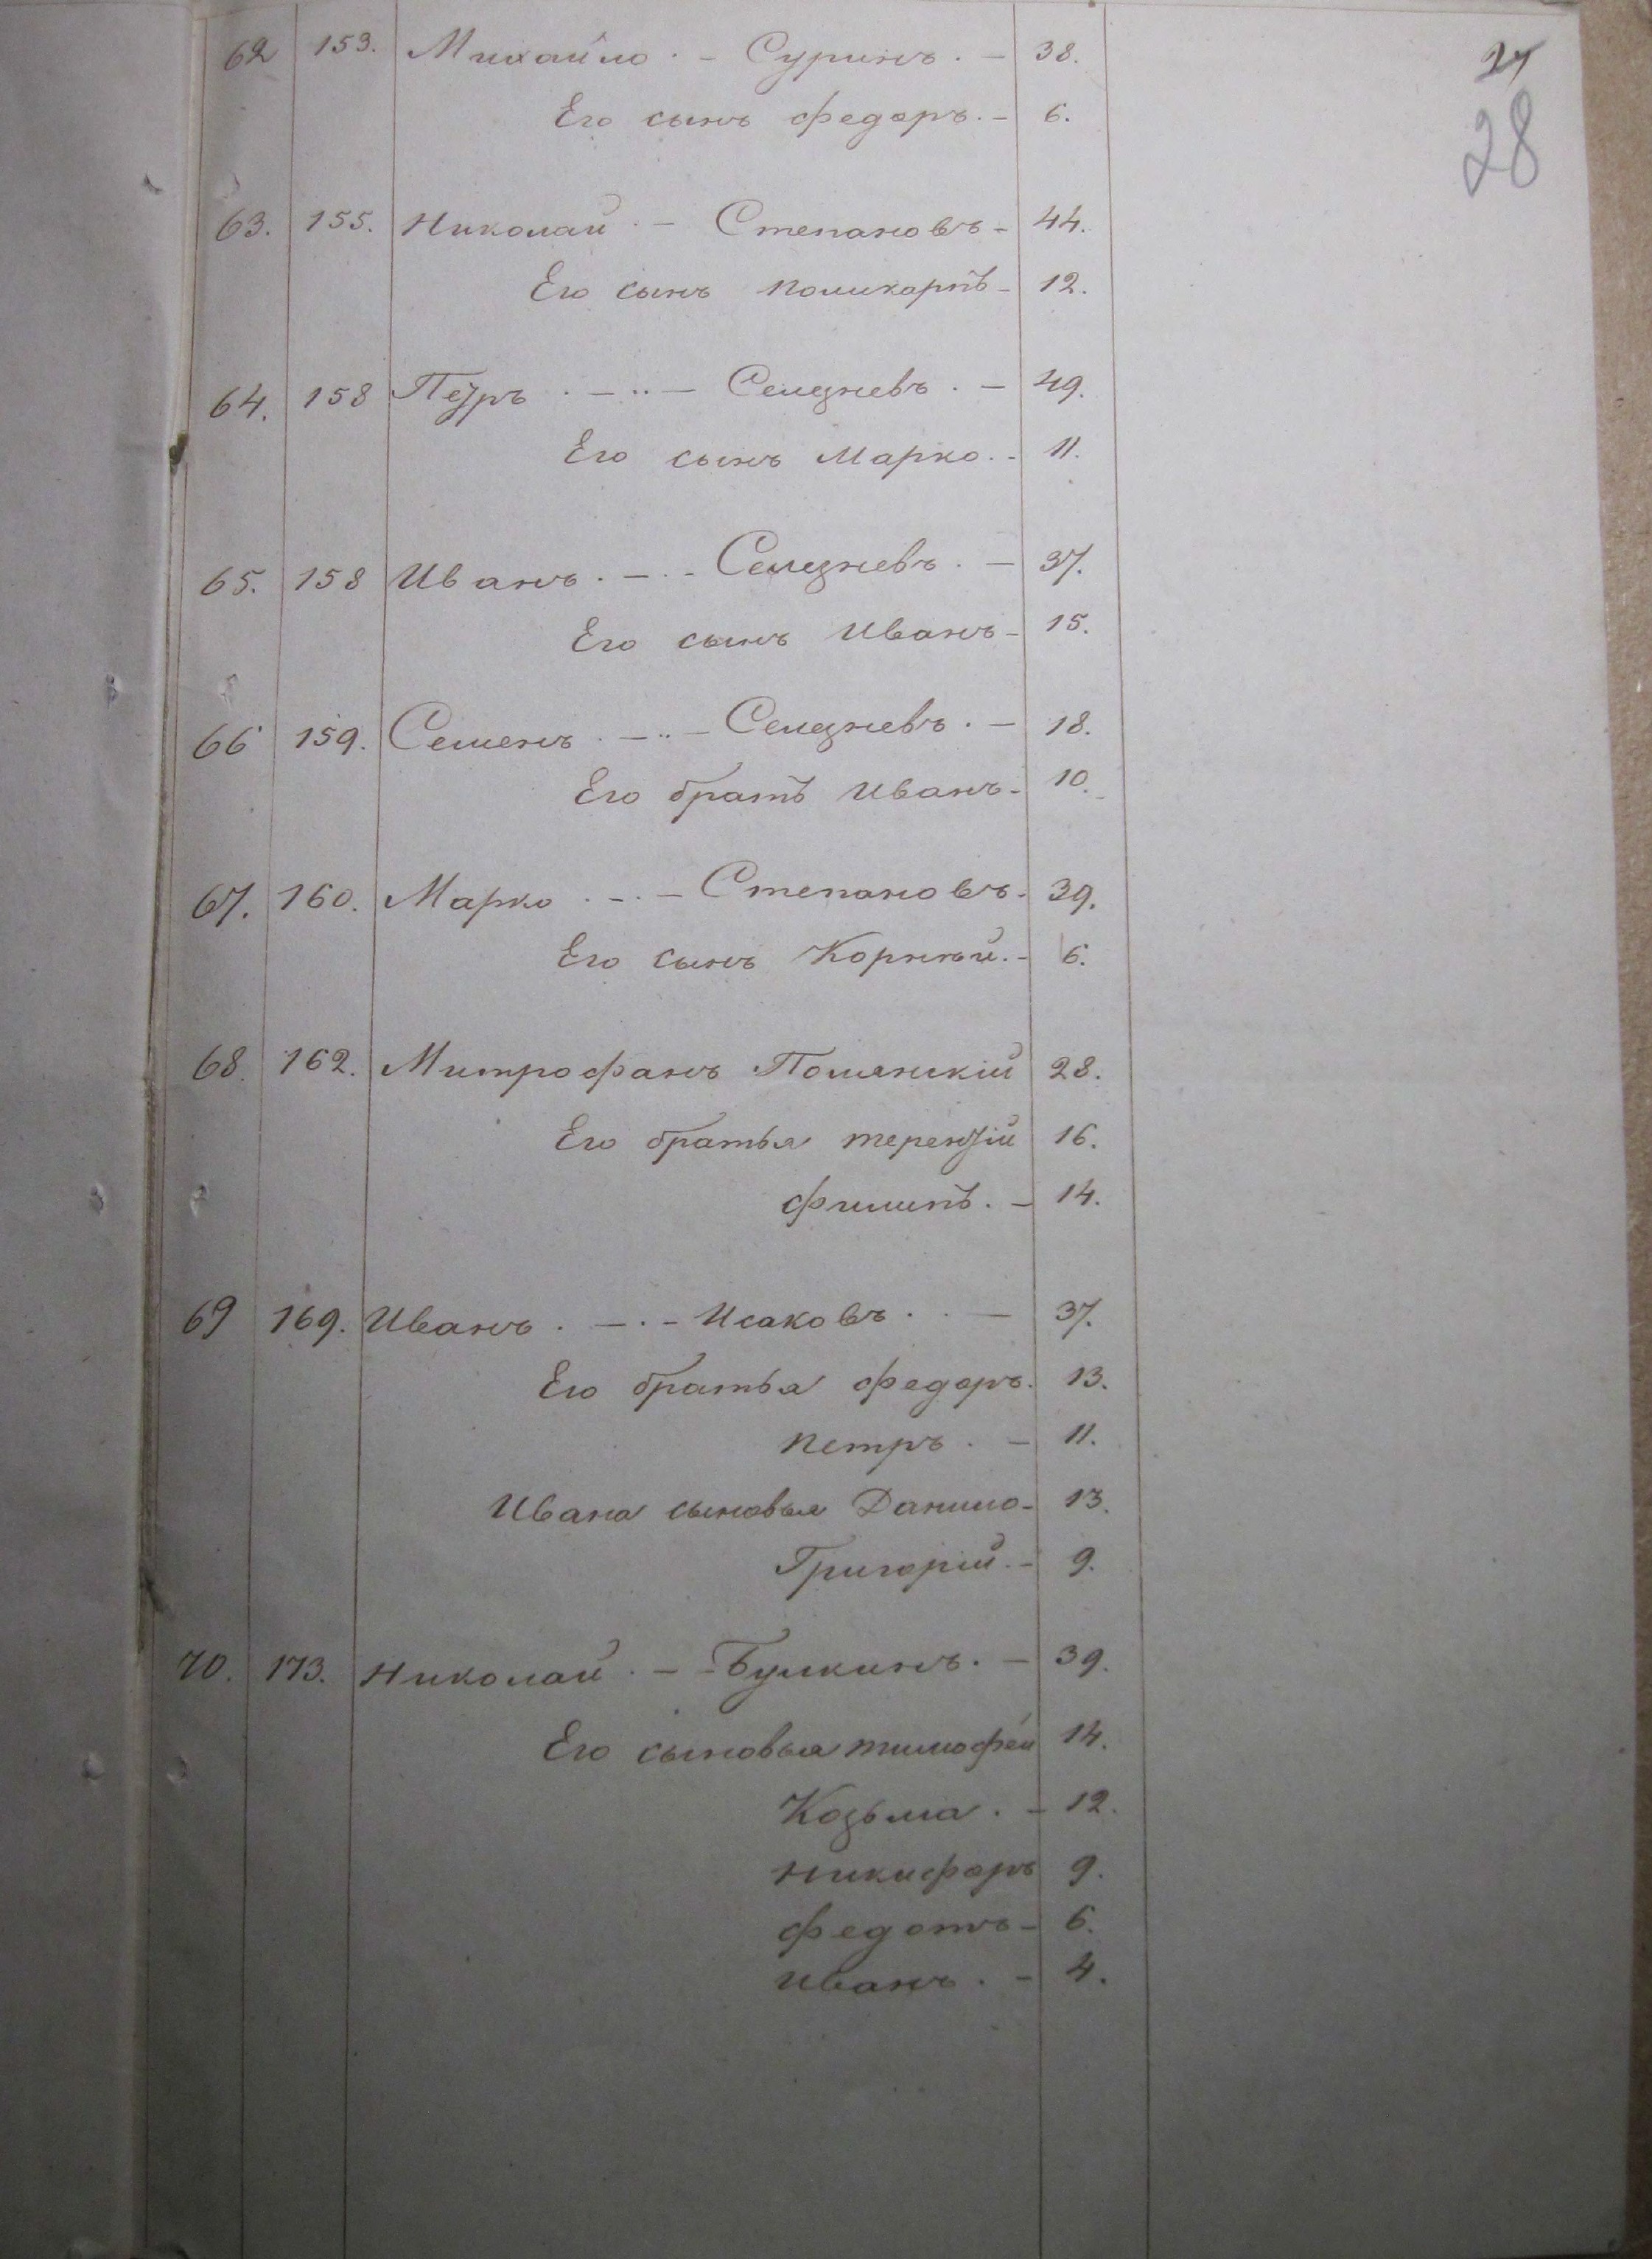 27
28
62 153. Михайло . - Суринъ . - 38.
Его сынъ Федоръ. - 6.
63. 155. Николай . - Степановъ - 44.
Его сынъ Поликарпъ - 12.
64. 158 Петръ . - .. - Селезневъ . - 49.
Его сынъ Марко. - 11.
65. 158 Иванъ . - . - Селезневъ . - 37.
Его сынъ Иванъ - 15.
66 159. Семенъ . - .. - Селезневъ . - 18.
Его братъ Иванъ - 10.
67. 160. Марко . - . - Степановъ. 39.
Его сынъ Корнѣй. - 6.
68. 162. Митрофанъ 28.
Его братья Терентій 16.
Филипъ. - 14.
69 169. Иванъ . - . - Исаковъ . . - 37.
Его братья Федоръ. 13.
Петръ . - 11.
Ивана сыновья Данило - 13.
Григорій. - 9.
70. 173. Николай . - - Булкинъ. - 39.
Его сыновья Тимофей 14.
Козьма . - 12.
Никифоръ 9.
Федотъ - 6.
Иванъ . - 4.